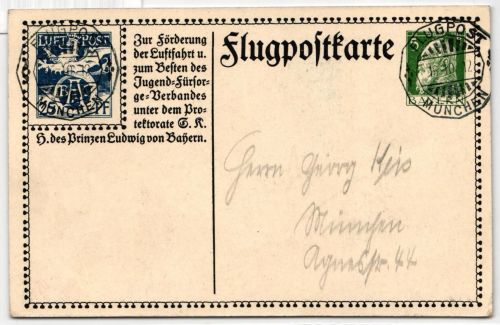 LUFTPOST
MÜNCHEN
Zur Förderung
der Luftfahrt u.
zum Besten des
Jugend-Fürsor-
ge-Verbandes
unter dem Pro-
tektorate S. K.
H. des Prinzen Ludwig von Bayern.
Flugpostkarte
5
FLUGPOST
MÜNCHEN
Herrn Georg
München
Agnesstr. 44